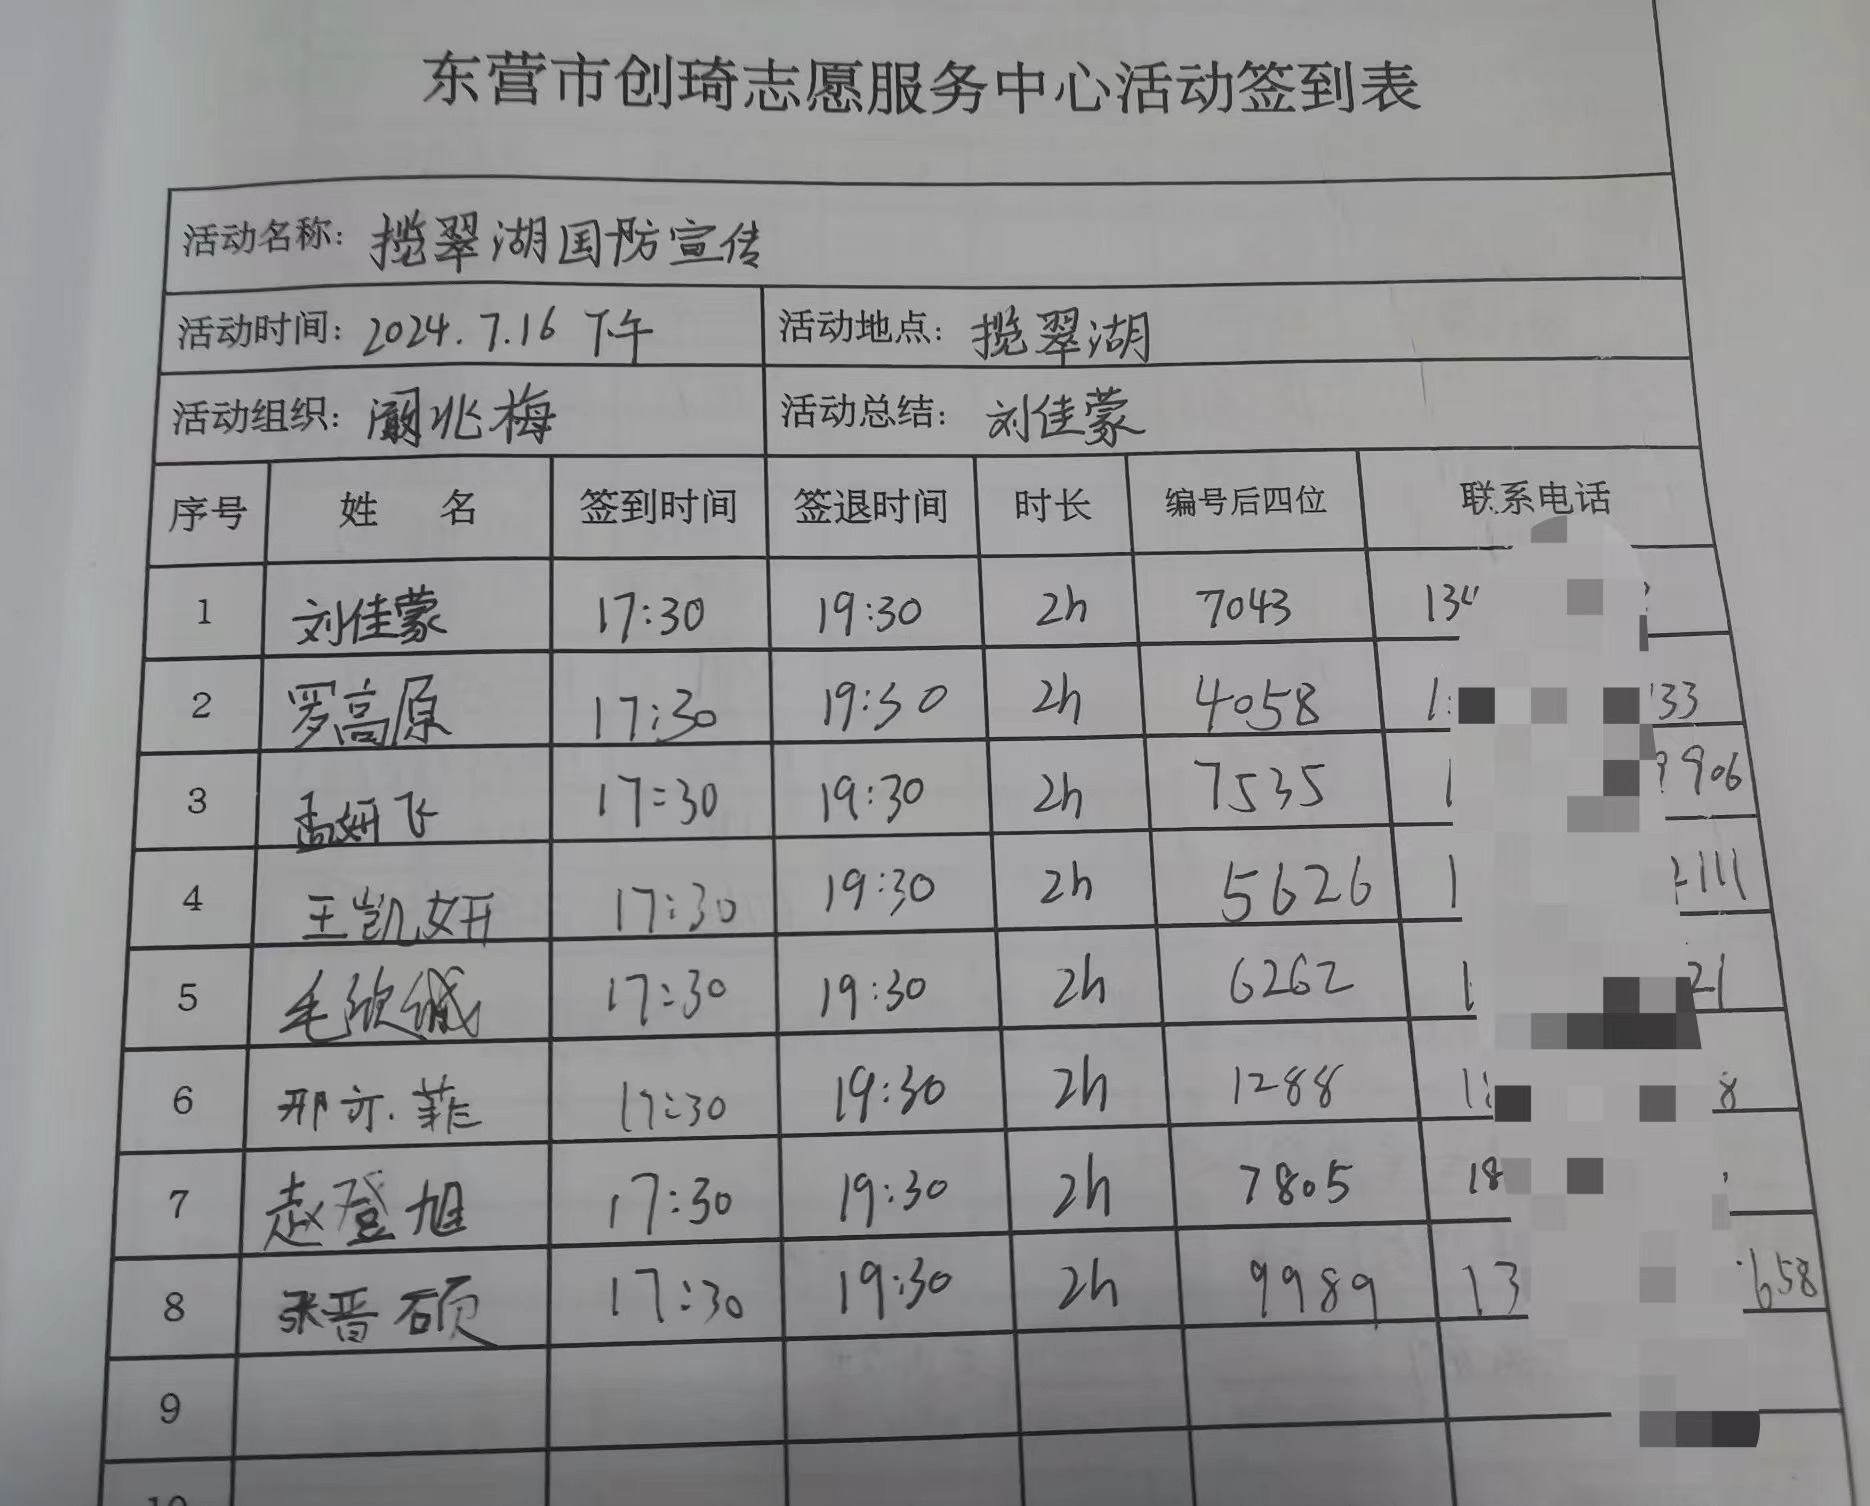 东营市创琦志愿服务中心活动签到表
活动名称：揽翠湖国防宣传
活动时间：2024.7.16 下午 活动地点：揽翠湖
活动组织：阚兆梅 活动总结：刘佳蒙
序号 姓 名 签到时间 签退时间 时长 编号后四位 联系电话
1 刘佳蒙 17:30 19:30 2h 7043 134
2 罗高原 17:30 19:30 2h 4058 1 33
3 孟妍飞 17:30 19:30 2h 7535 1 906
4 王凯妍 17:30 19:30 2h 5626 1 111
5 毛欣 17:30 19:30 2h 6262 1 21
6 邢亦菲 17:30 19:30 2h 1288 1 8
7 赵登旭 17:30 19:30 2h 7805 18
8 张晋硕 17:30 19:30 2h 9989 13 658
9
10